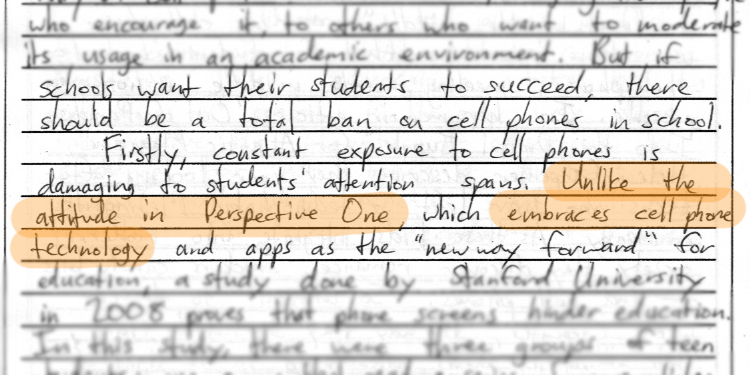 who encourage it, to others who want to moderate
its usage in an academic environment. But if
schools want their students to succeed, there
should be a total ban on cell phones in school.
Firstly, constant exposure to cell phones is
damaging to students' attention spans. Unlike the
attitude in Perspective One, which embraces cell phone
technology and apps as the "new way forward" for
education, a study done by Stanford University
in 2008 proves that phone screens hinder education.
In this study, there were three groups of teen